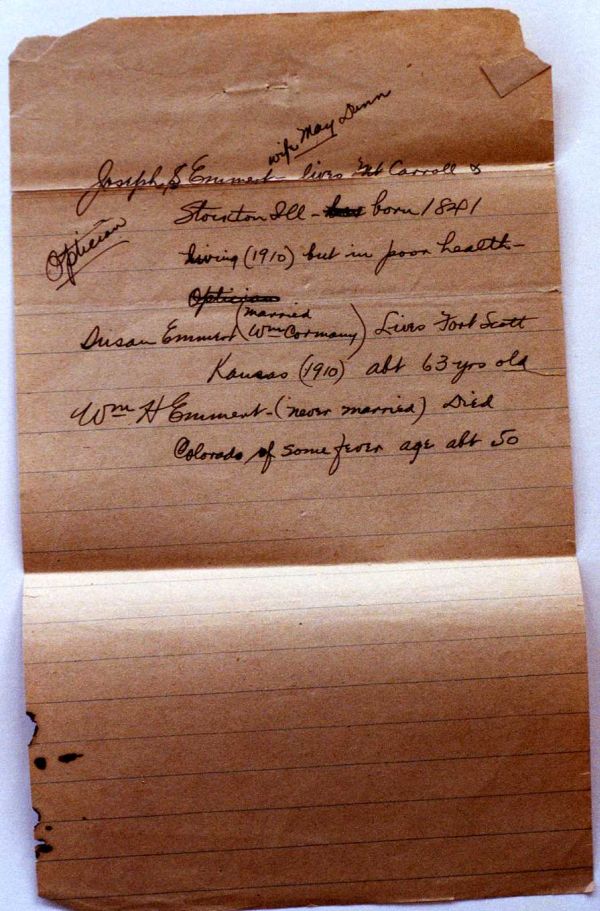 wife May Dunn
Joseph S Emmert lives Mt Carroll &
Stockton Ill - born 1841
Optician
living (1910) but in poor health -
Optician
Susan Emmert (married Wm Cormany) Lives Fort Scott
Kansas (1910) abt 63 yrs old
Wm H Emmert - (never married) Died
Colorado of some fever age abt 50